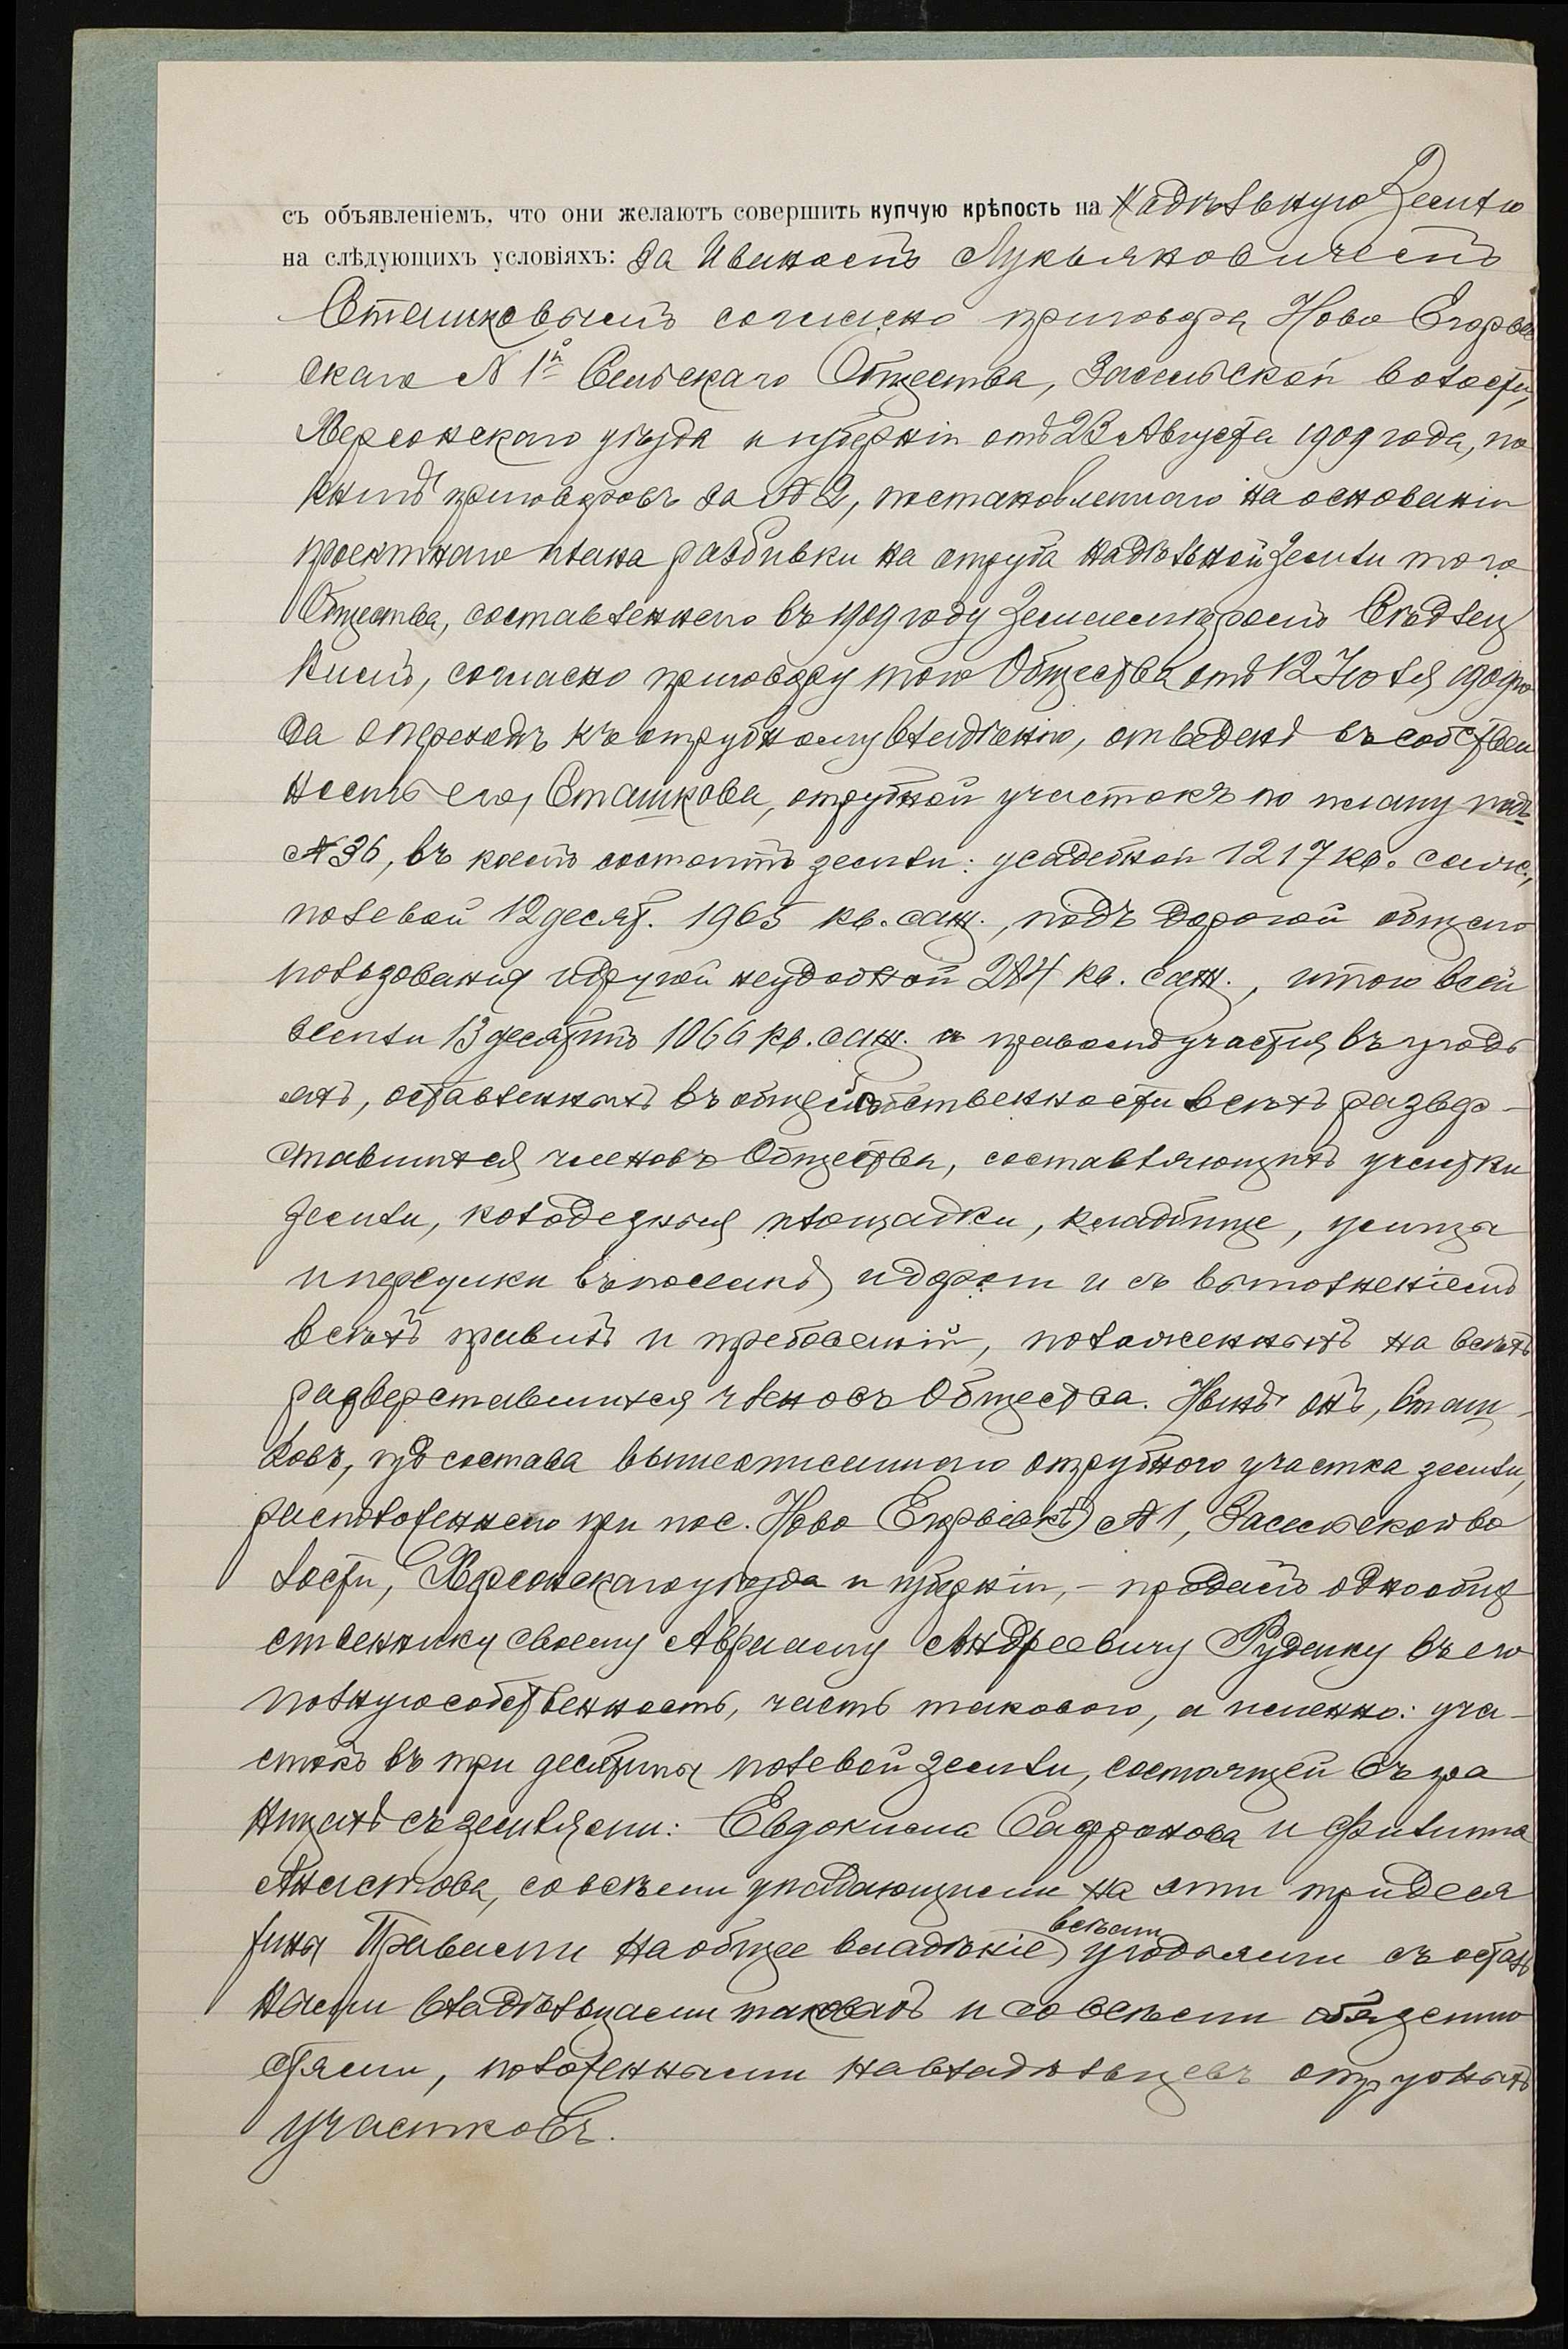 съ объявленіемъ, что они желаютъ совершить купчую крѣпость на Надѣльную Землю
на слѣдующихъ условіяхъ: За Иваномъ Лукьяновичемъ
Сташковымъ согласно приговора Ново Егорьев
скаго N 1й Сельскаго Общества, Засельской волости,
Херсонскаго уѣзда и губерніи отъ 23 Августа 1909 года, по
книгѣ приговоровъ за N 2, постановленнаго на основаніи
проектнаго плана разбивки на отруба надѣльной земли того
Общества, составленнаго въ 1909 году Землемѣромъ
кимъ, согласно приговору того Общества отъ 12 Іюля 1909 го
да о переходѣ къ отрубному владѣнію, отведенъ въ собствен
ность его, Сташкова, отрубной участокъ по плану подъ
N 36, въ коемъ состоитъ земли: усадебной 1217 кв. саж.,
полевой 12 десят. 1965 кв. саж., подъ дорогой общаго
пользованія и другой неудобной 284 кв. саж., итого всей
земли 13 десятинъ 1066 кв. саж. съ правомъ участія въ угодь
яхъ, оставленныхъ въ общей собственности всѣхъ развер-
ставшихся членовъ Общества, составляющихъ участки
земли, колодезныя площадки, кладбище, улицы
и переулки въ поселкѣ, и дорогъ и съ выполненіемъ
всѣхъ правилъ и требованій, положенныхъ на всѣхъ
разверставшихся членовъ Общества. Нынѣ онъ, Сташ-
ковъ, изъ состава вышеописаннаго отрубного участка земли,
расположеннаго при пос. Ново Егорьевкѣ N 1, Засельской во
лости, Херсонскаго уѣзда и губерніи, - продалъ однообще
ственнику своему Аврааму Андреевичу Руденку въ его
полную собственность, часть такового, а именно: уча-
стокъ въ три десятины полевой земли, состоящей въ гра
ницахъ съ землями: Евдокима Сафронова и Филиппа
Анастова, со всѣми упадающими на эти три деся
тины Правами на общее владѣніе всѣми угодьями съ осталь
ными владѣльцами таковыхъ и со всѣми обязанно
стями, положенными на владѣльцевъ отрубныхъ
участковъ.